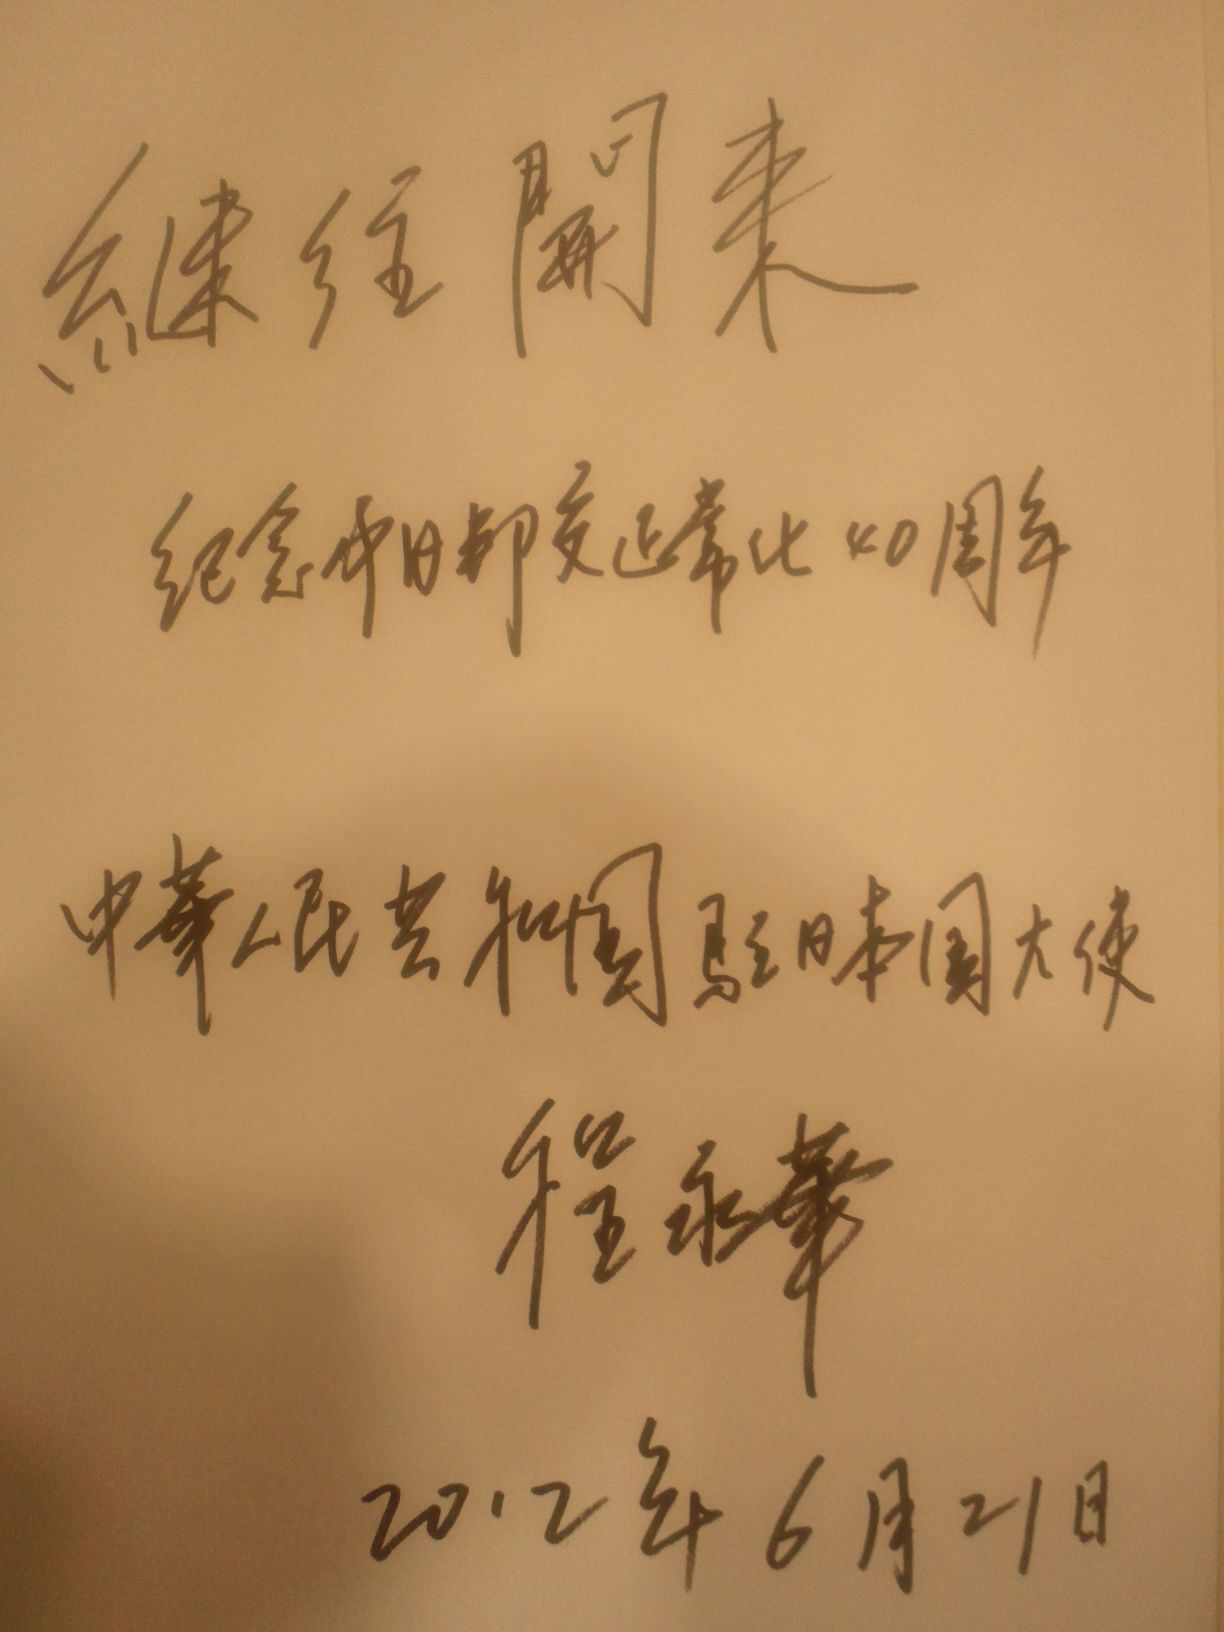 継往開来
纪念中日邦交正常化40周年
中華人民共和国駐日本国大使
程永華
2012年6月21日